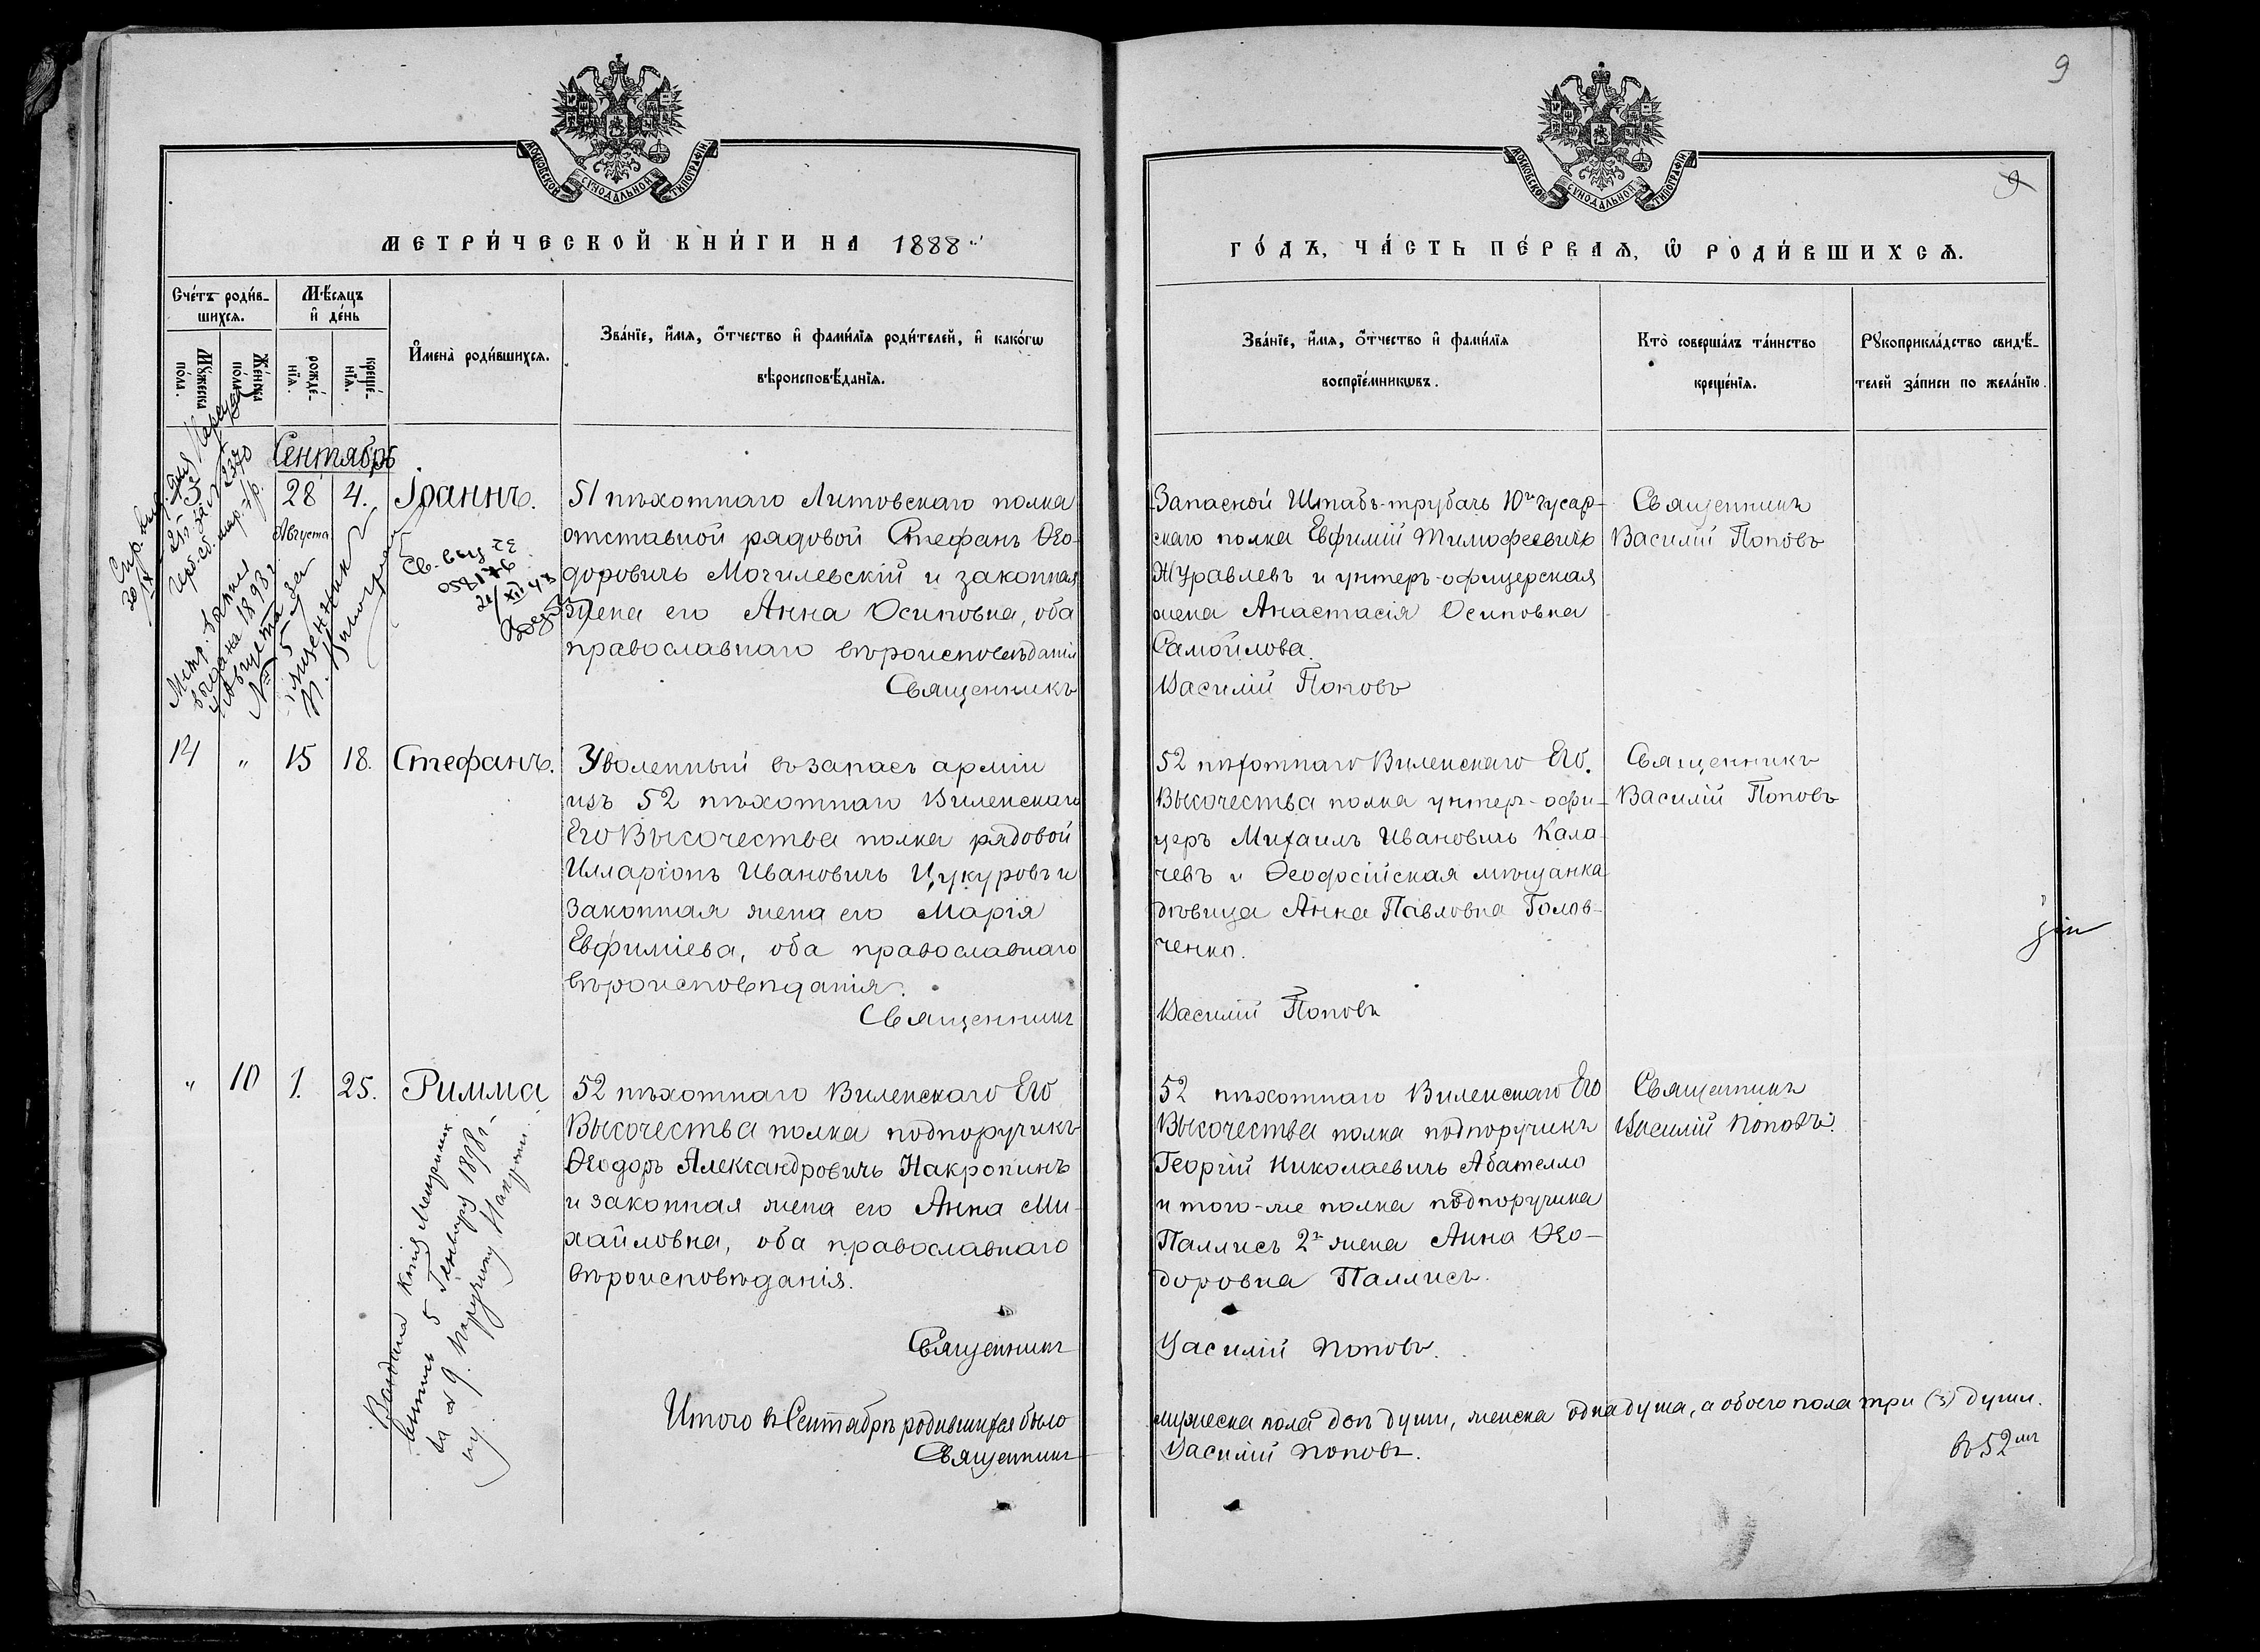 9
9
МОСКОВСКОЙ СѴНОДАЛЬНОЙ ТИПОГРАФІИ
МОСКОВСКОЙ СѴНОДАЛЬНОЙ ТИПОГРАФІИ
МЕТРИ́ЧЕСКОЙ КНИ́ГИ НА 1888
ГО́ДЪ, ЧА́СТЬ ПЕ́РВАЯ, Ѡ҆ РОДИ́ВШИХСЯ.
Сче́тъ роди́в-
шихся.
Мꙋ́жеска
по́ла.
Же́нска
по́ла.
Мѣ́сяцъ
и҆ де́нь
рожде́-
нїя.
креще́-
нїя.
И҆мена̀ роди́вшихся.
Зва́нїе, и҆́мя, ѻ҆́тчество и҆ фами́лїя роди́телей, и҆ како́гѡ
вѣроисповѣ́данїя.
Зва́нїе, и҆́мя, ѻ҆́тчество и҆ фами́лїя
воспрїе́мникѡвъ.
Кто̀ соверша́лъ та́инство
креще́нїя.
Рꙋкоприкла́дство свидѣ́-
телей за́писи по жела́нїю.
Сентябрь
28 4. Іоаннъ.
Августа
51 пѣхотнаго Литовскаго полка
отставной рядовой Стефанъ Ѳео-
доровичъ Могилевскій и законная
жена его Анна Осиповна, оба
православнаго вѣроисповѣданія
Священникъ
Запасной Штабъ-трубачъ 10го гусар-
скаго полка Евфимій Тимофеевичъ
Журавлевъ и унтеръ-офицерская
жена Анастасія Осиповна
Самойлова.
Василій Поповъ
Священникъ
Василій Поповъ
Метр. выпись
выдана 1898 г.
№ 5
священникъ
14 " 15 18. Стефанъ.
Уволенный въ запасъ арміи
изъ 52 пѣхотнаго Виленскаго
Его Высочества полка рядовой
Илларіонъ Ивановичъ Цукуровъ и
законная жена его Марія
Евфиміева, оба православнаго
вѣроисповѣданія.
Священникъ
52 пѣхотнаго Виленскаго Его
Высочества полка унтеръ-офи-
церъ Михаилъ Ивановичъ Кала-
чевъ и Ѳеодосійская мѣщанка
дѣвица Анна Павловна Голов-
ченко.
Василій Поповъ
Священникъ
Василій Поповъ
" 10 1. 25. Римма
52 пѣхотнаго Виленскаго Его
Высочества полка подпоручикъ
Ѳеодоръ Александровичъ Накропинъ
и законная жена его Анна Ми-
хайловна, оба православнаго
вѣроисповѣданія.
Священникъ
52 пѣхотнаго Виленскаго Его
Высочества полка подпоручикъ
Георгій Николаевичъ Абателло
и того-же полка подпоручика
Паллисъ 2го жена Анна Ѳео-
доровна Паллисъ.
Василій Поповъ.
Священникъ
Василій Поповъ.
5 Генваря 1898 г.
за № 9. Поручику
Итого въ Сентябрѣ родившихся было
Священникъ
мужеска пола двѣ души, женска одна душа, а обоего пола три (3) души.
Василій Поповъ.
въ 52мъ